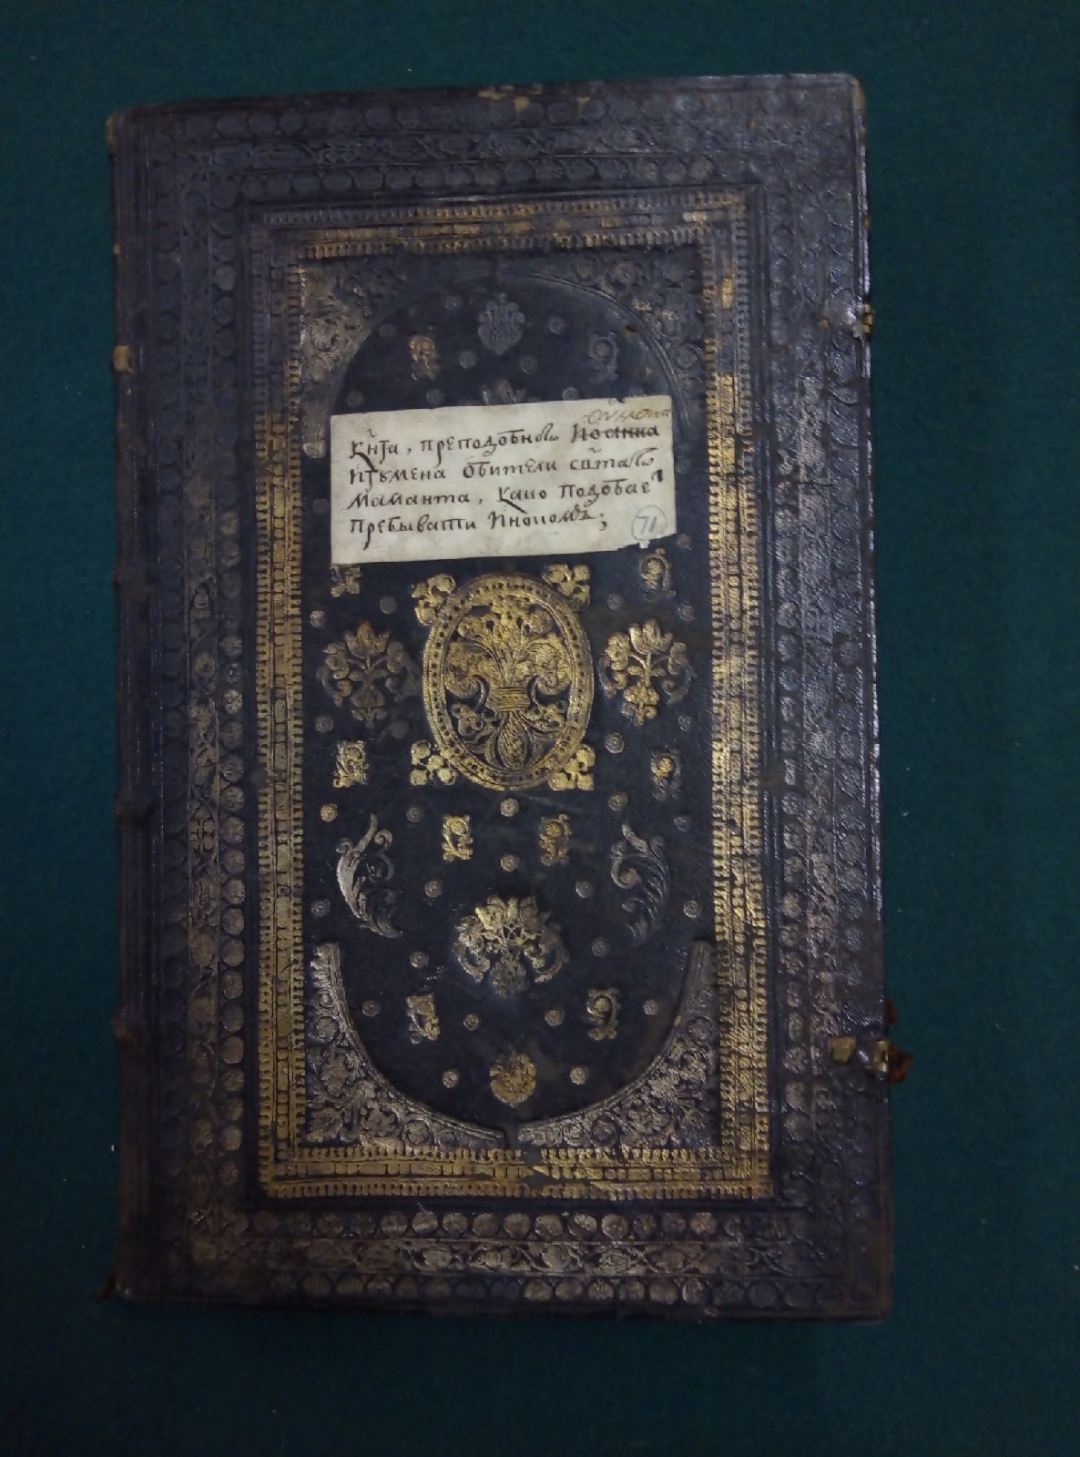 Симеона
Кн҃га, преподобнаⷢ Иоанна
игꙋмена обители ст҃аⷢ
Маманта, како подобаеⷮ
пребывати иноком;
71